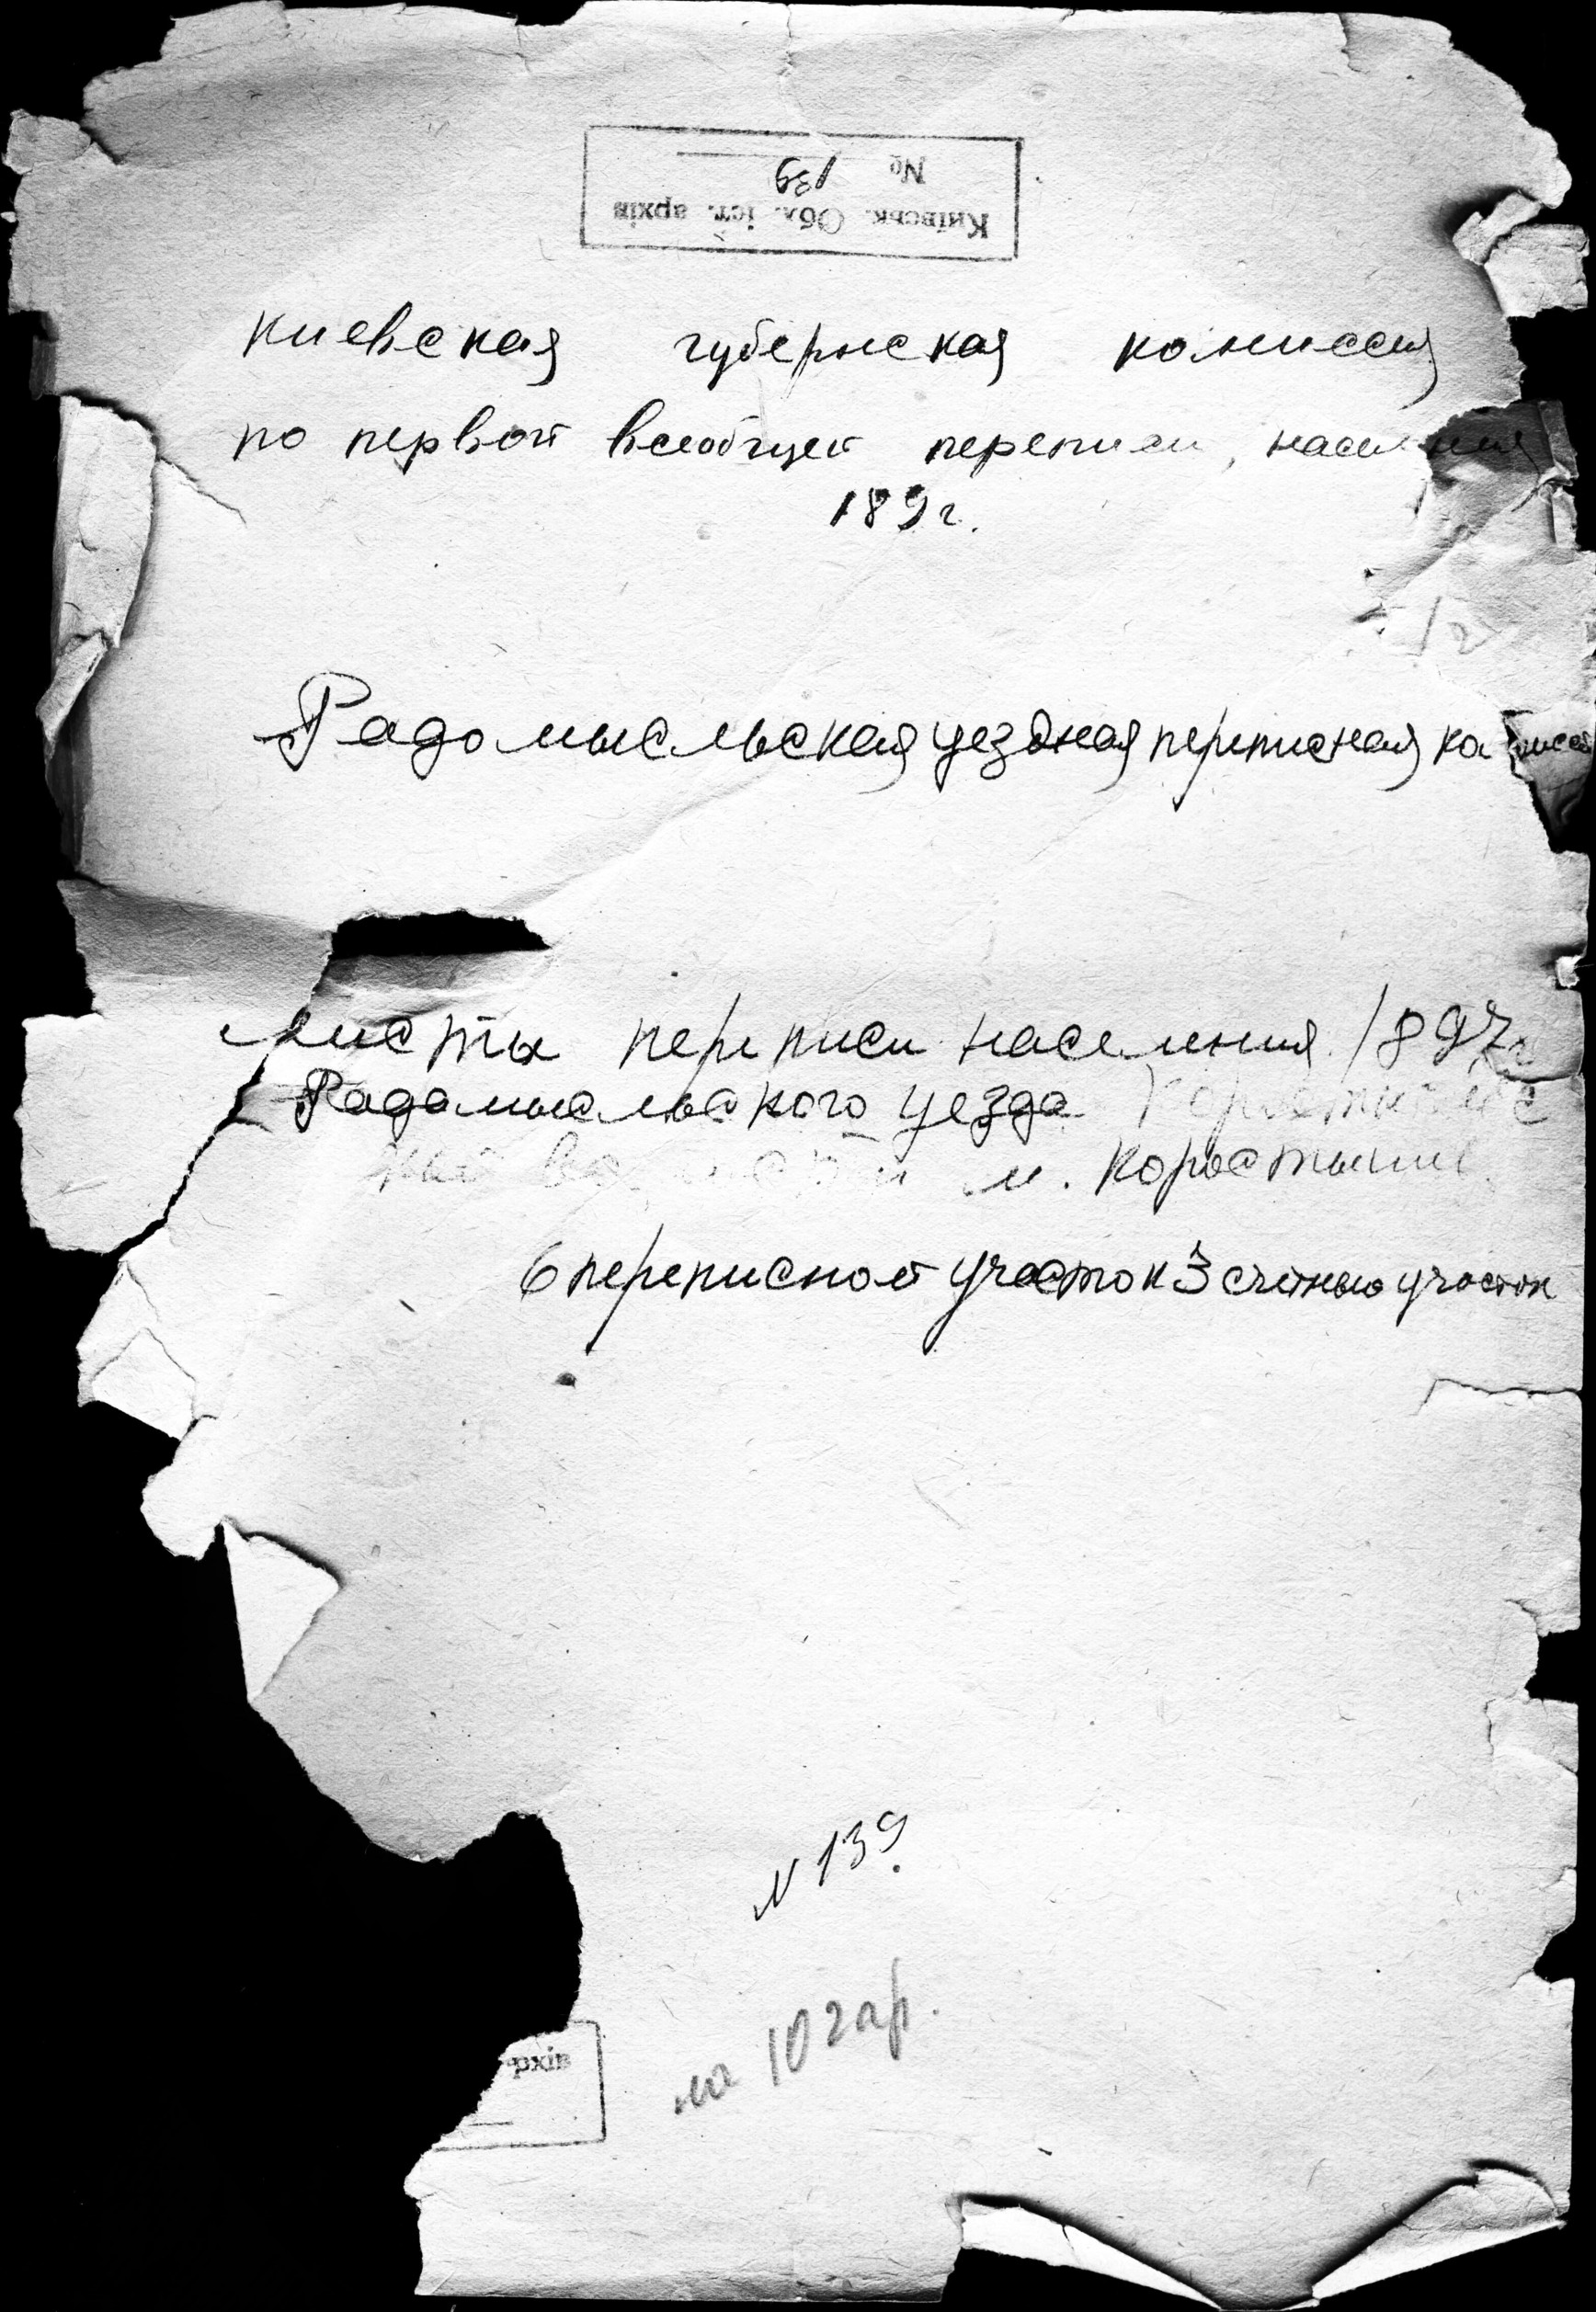 Київськ. Обл. іст. архів
№ 139
Киевская губернская комиссия
по первой всеобщей переписи, населения
189г.
Радомысльская уездная переписная комиссия
Листы переписи населения 1897г
Радомысльского уезда
м. Коростышев
6 переписной участок 3 счетный участок
N 139.
на 10 гар.
рхів